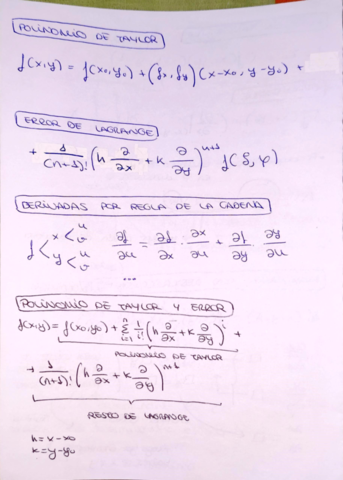 POLINOMIO DE TAYLOR
f(x,y) = f(x₀,y₀) + (fₓ, f_y) (x-x₀, y-y₀) +
ERROR DE LAGRANGE
+ 1/(n+1)! (h ∂/∂x + k ∂/∂y)^(n+1) f(ξ, φ)
DERIVADAS POR REGLA DE LA CADENA
f < x < u v y < u v ∂f/∂u = ∂f/∂x · ∂x/∂u + ∂f/∂y · ∂y/∂u
...
POLINOMIO DE TAYLOR Y ERROR
f(x,y) = f(x₀,y₀) + Σ_(i=1)^n 1/i! (h ∂/∂x + k ∂/∂y)^i +
POLINOMIO DE TAYLOR
+ 1/(n+1)! (h ∂/∂x + k ∂/∂y)^(n+1)
RESTO DE LAGRANGE
h = x - x₀
k = y - y₀